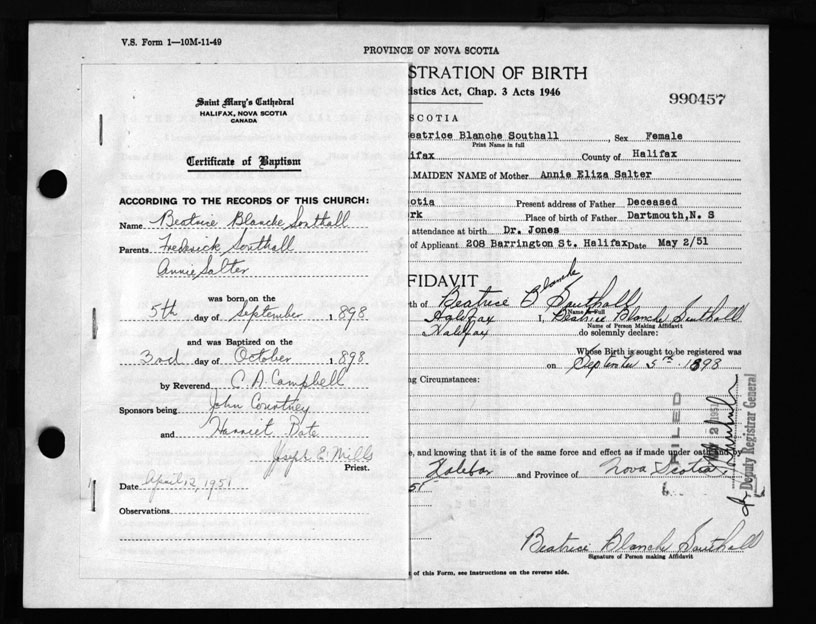 V.S. Form 1—10M-11-49
PROVINCE OF NOVA SCOTIA
STRATION OF BIRTH
istics Act, Chap. 3 Acts 1946
990457
Saint Mary's Cathedral
HALIFAX, NOVA SCOTIA
CANADA
Certificate of Baptism
ACCORDING TO THE RECORDS OF THIS CHURCH:
Name Beatrice Blanche Southall
Parents Frederick Southall
Annie Salter
was born on the
5th day of September 1898
and was Baptized on the
3rd day of October 1898
by Reverend C. A. Campbell
Sponsors being John Courtney
and Harriet Pate
Joseph E. Mills
Priest.
Date April 12, 1951
Observations
SCOTIA
eatrice Blanche Southall, Sex Female
Print Name in full
ifax County of Halifax
MAIDEN NAME of Mother Annie Eliza Salter
otia Present address of Father Deceased
rk Place of birth of Father Dartmouth, N. S
attendance at birth Dr. Jones
of Applicant 208 Barrington St. Halifax Date May 2/51
FIDAVIT
th of Beatrice B Blanche Southall
Name in Full
Halifax I, Beatrice Blanche Southall
Name of Person Making Affidavit
Halifax do solemnly declare:
Whose Birth is sought to be registered was
on September 5th 1898
ng Circumstances:
FILED
MAY 2 1951
Deputy Registrar General
e, and knowing that it is of the same force and effect as if made under oath and by
Halifax and Province of Nova Scotia,
51
Beatrice Blanche Southall
Signature of Person making Affidavit
t of this Form, see instructions on the reverse side.